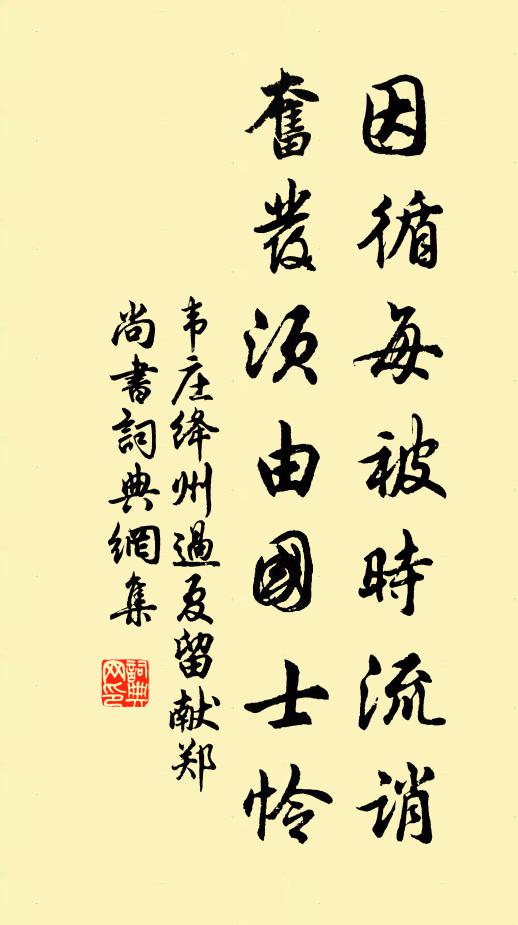 因循每被時流誚
奮發須由國士怜
韦庄绛州過夏留献郑
尚書詞典網集
詞典网印